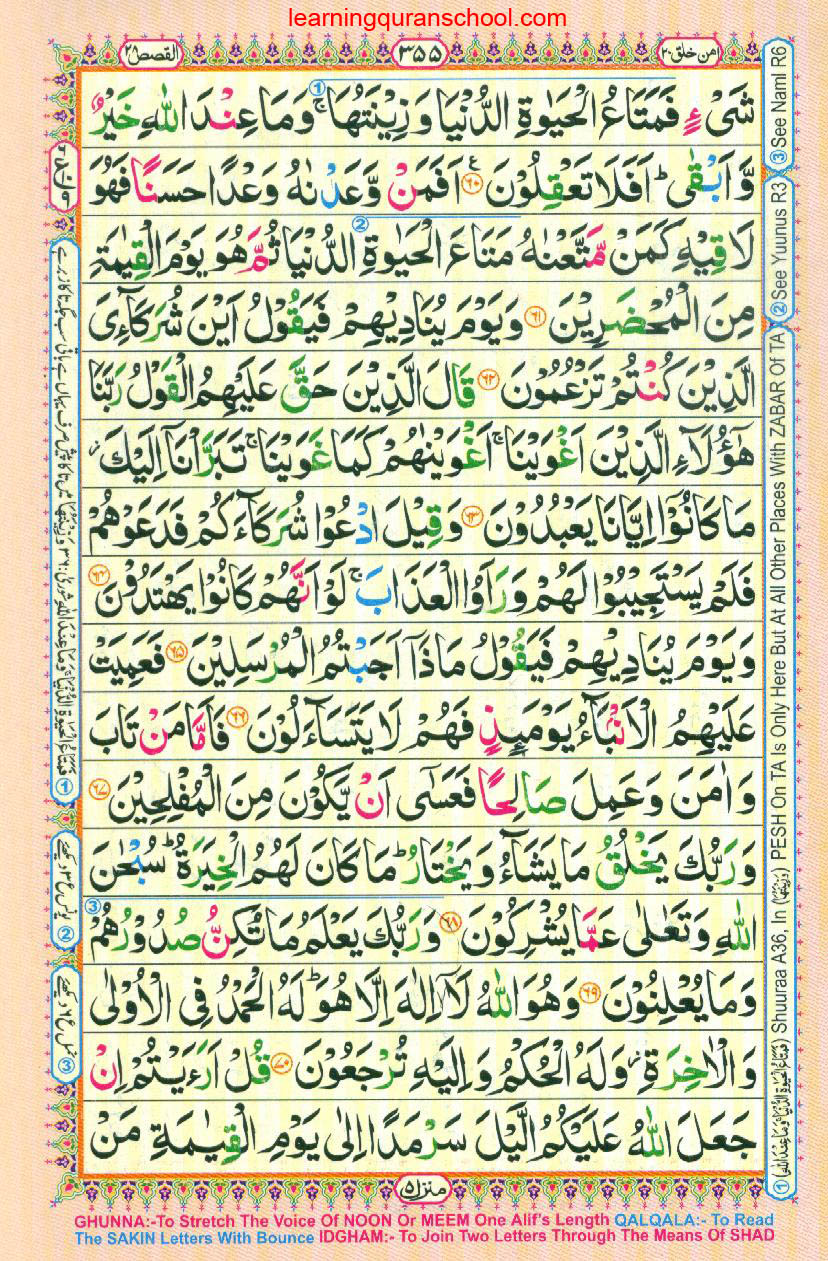 learningquranschool.com
القصص ٢٨
٣٥٥
امن خلق ٢٠
شَیْءٍ فَمَتَاعُ الْحَیٰوةِ الدُّنْیَا وَ زِیْنَتُهَا ۚ وَمَا عِنْدَ اللّٰهِ خَیْرٌ
وَّ اَبْقٰی ؕ اَفَلَا تَعْقِلُوْنَ ﴿۶۰﴾ اَفَمَنْ وَّعَدْنٰهُ وَعْدًا حَسَنًا فَهُوَ
لَاقِیْهِ كَمَنْ مَّتَّعْنٰهُ مَتَاعَ الْحَیٰوةِ الدُّنْیَا ثُمَّ هُوَ یَوْمَ الْقِیٰمَةِ
مِنَ الْمُحْضَرِیْنَ ﴿۶۱﴾ وَیَوْمَ یُنَادِیْهِمْ فَیَقُوْلُ اَیْنَ شُرَكَآءِیَ
الَّذِیْنَ كُنْتُمْ تَزْعُمُوْنَ ﴿۶۲﴾ قَالَ الَّذِیْنَ حَقَّ عَلَیْهِمُ الْقَوْلُ رَبَّنَا
هٰۤؤُلَآءِ الَّذِیْنَ اَغْوَیْنَا ۚ اَغْوَیْنٰهُمْ كَمَا غَوَیْنَا ۚ تَبَرَّاْنَاۤ اِلَیْكَ ؗ
مَا كَانُوْۤا اِیَّانَا یَعْبُدُوْنَ ﴿۶۳﴾ وَقِیْلَ ادْعُوْا شُرَكَآءَكُمْ فَدَعَوْهُمْ
فَلَمْ یَسْتَجِیْبُوْا لَهُمْ وَرَاَوُا الْعَذَابَ ۚ لَوْ اَنَّهُمْ كَانُوْا یَهْتَدُوْنَ ﴿۶۴﴾
وَیَوْمَ یُنَادِیْهِمْ فَیَقُوْلُ مَاذَاۤ اَجَبْتُمُ الْمُرْسَلِیْنَ ﴿۶۵﴾ فَعَمِیَتْ
عَلَیْهِمُ الْاَنْۢبَآءُ یَوْمَىِٕذٍ فَهُمْ لَا یَتَسَآءَلُوْنَ ﴿۶۶﴾ فَاَمَّا مَنْ تَابَ
وَاٰمَنَ وَعَمِلَ صَالِحًا فَعَسٰۤی اَنْ یَّكُوْنَ مِنَ الْمُفْلِحِیْنَ ﴿۶۷﴾
وَرَبُّكَ یَخْلُقُ مَا یَشَآءُ وَیَخْتَارُ ؕ مَا كَانَ لَهُمُ الْخِیَرَةُ ؕ سُبْحٰنَ
اللّٰهِ وَتَعٰلٰی عَمَّا یُشْرِكُوْنَ ﴿۶۸﴾ وَرَبُّكَ یَعْلَمُ مَا تُكِنُّ صُدُوْرُهُمْ
وَمَا یُعْلِنُوْنَ ﴿۶۹﴾ وَهُوَ اللّٰهُ لَاۤ اِلٰهَ اِلَّا هُوَ ؕ لَهُ الْحَمْدُ فِی الْاُوْلٰی
وَالْاٰخِرَةِ ؗ وَلَهُ الْحُكْمُ وَاِلَیْهِ تُرْجَعُوْنَ ﴿۷۰﴾ قُلْ اَرَءَیْتُمْ اِنْ
جَعَلَ اللّٰهُ عَلَیْكُمُ الَّیْلَ سَرْمَدًا اِلٰی یَوْمِ الْقِیٰمَةِ مَنْ
① (فَمَتَاعُ الْحَیٰوةِ الدُّنْیَا وَمَا عِنْدَ اللّٰهِ) Shuuraa A36, In (وَزِیْنَتُهَا) PESH On TA Is Only Here But At All Other Places With ZABAR Of TA
② See Yuunus R3
③ See Naml R6
② یونس ع ٣ دیکھیے
③ نمل ع ٦ دیکھیے
منزل ٥
GHUNNA:-To Stretch The Voice Of NOON Or MEEM One Alif's Length QALQALA:- To Read
The SAKIN Letters With Bounce IDGHAM:- To Join Two Letters Through The Means Of SHAD